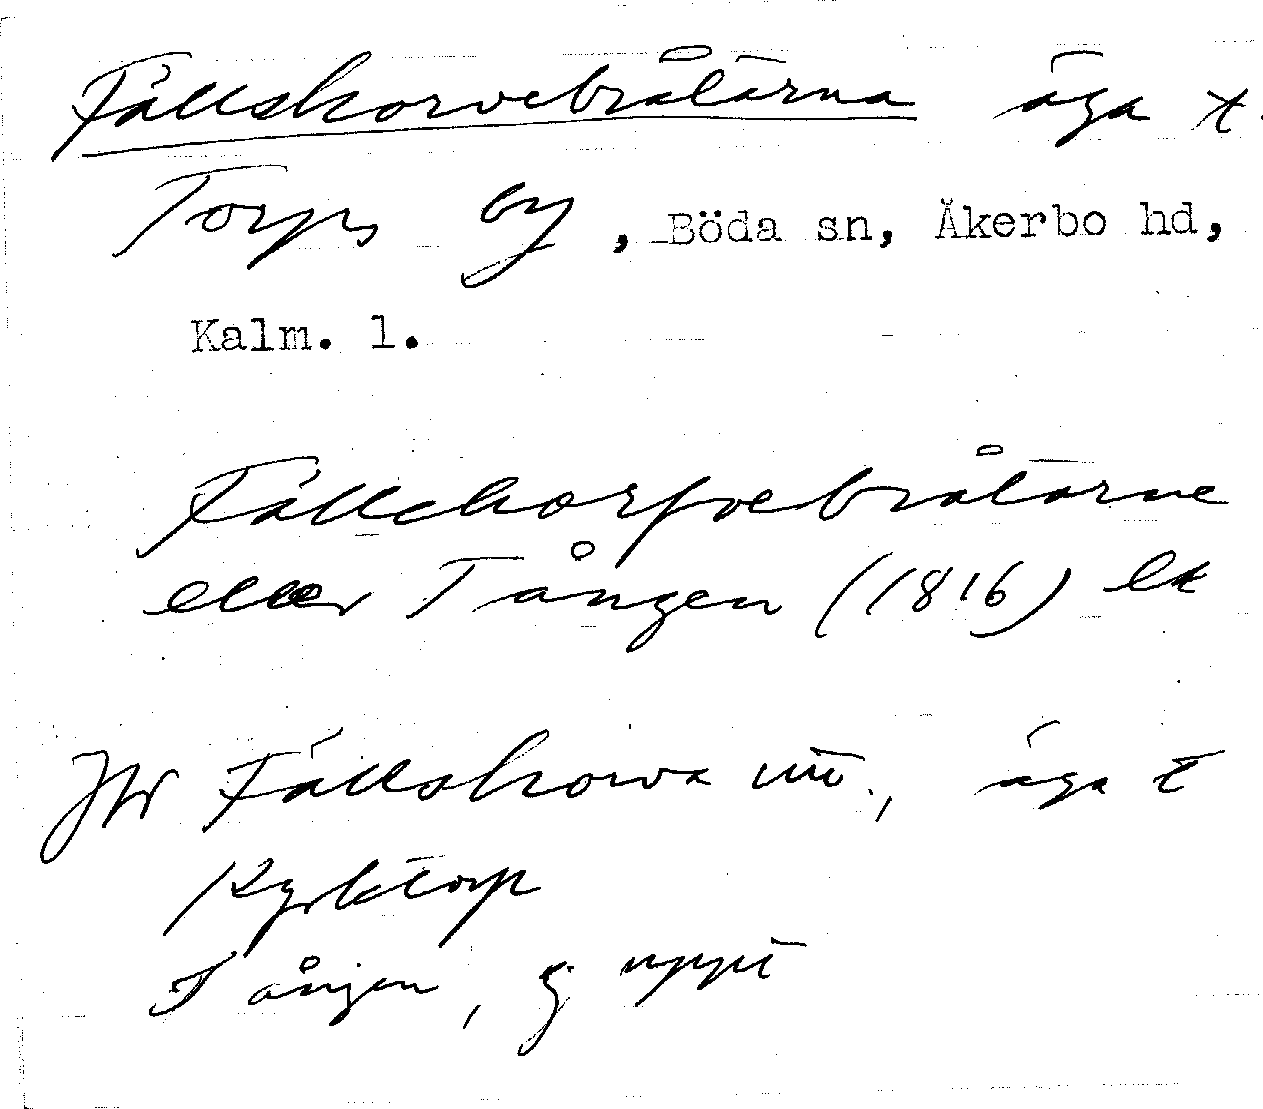 Fällskorvebråtarna äga t.
Torps by, Böda sn, Åkerbo hd,
Kalm. l.
Fällskorfvebråtarne
eller Tången (1816) lk
Jfr Fällskorva, äga t
Kyrktorp
Tången, ej uppt